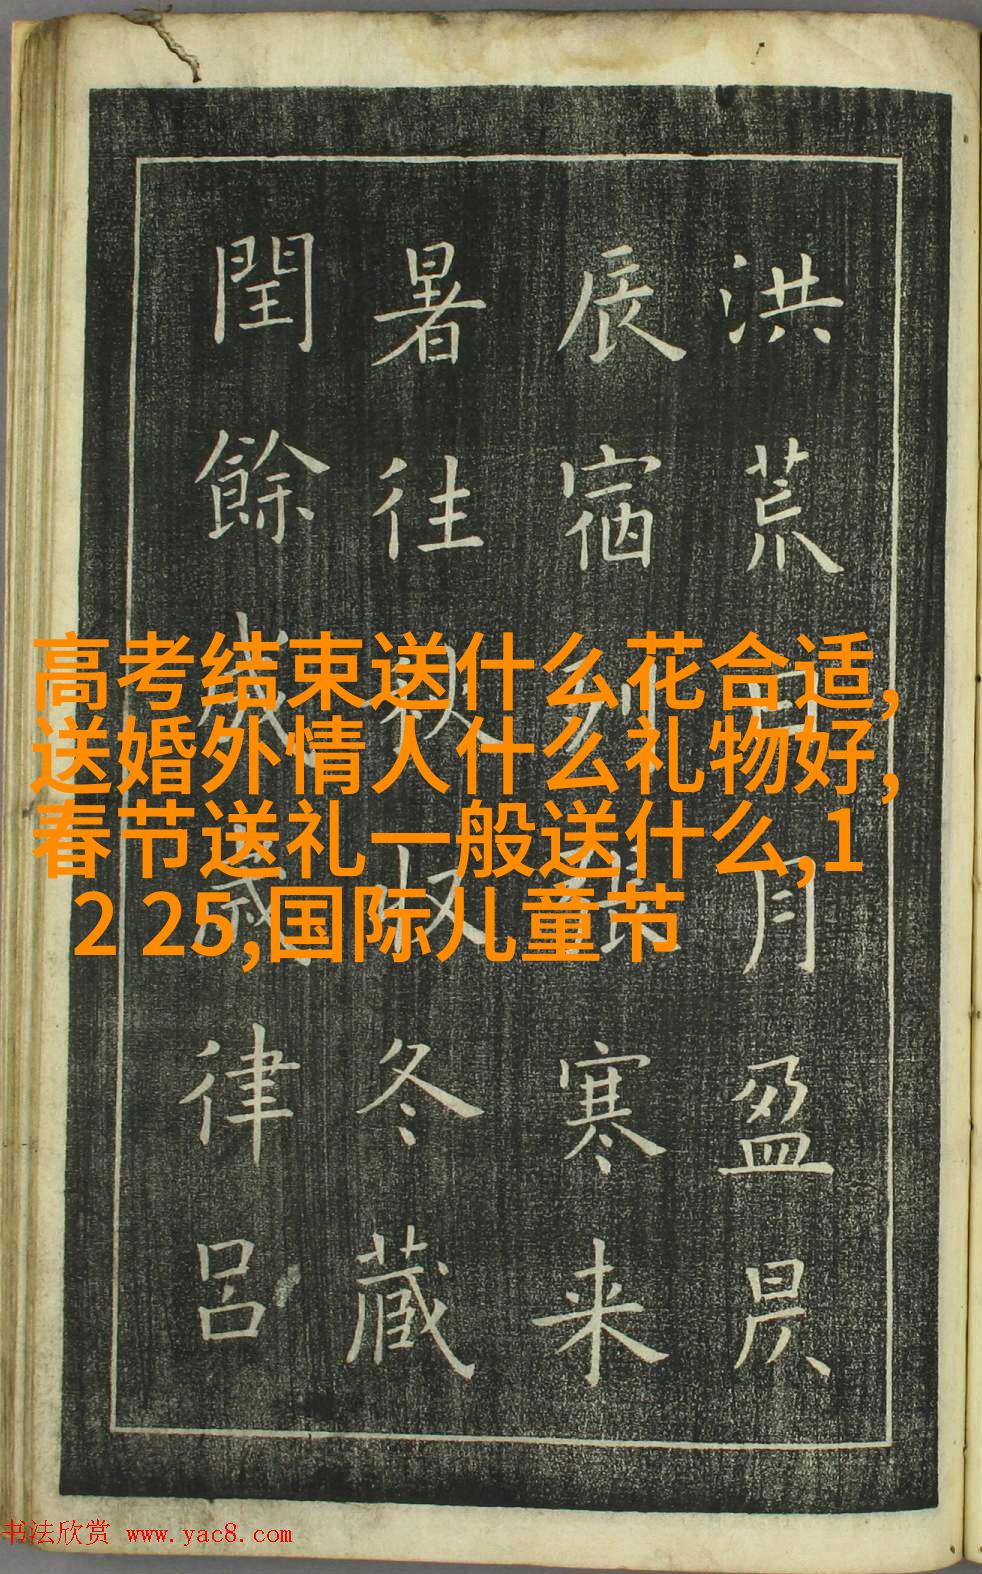 洪荒日月盈昃
辰宿列張寒来
暑往秋收冬藏
閏餘成歲律呂
高考结束送什么花合适,
送婚外情人什么礼物好,
春节送礼一般送什么,1
2 25,国际儿童节
书法欣赏 www.yac8.com